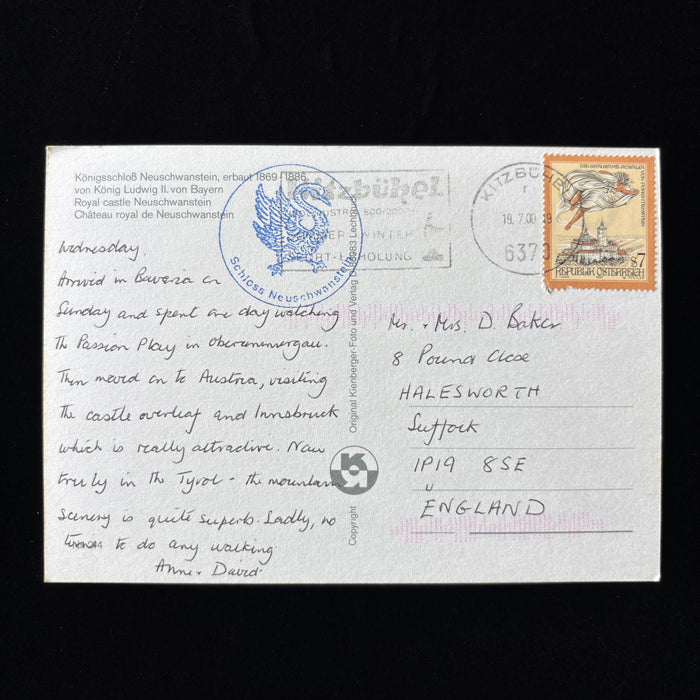 Königsschloß Neuschwanstein, erbaut 1869-1886
von König Ludwig II. von Bayern
Royal castle Neuschwanstein
Château royal de Neuschwanstein
Schloss Neuschwanstein
Kitzbühel
WINTER
SPORT-ERHOLUNG
KITZBÜHEL
19.7.00
6370
S7
REPUBLIK ÖSTERREICH
Wednesday.
Arrived in Bavaria on
Sunday and spent one day watching
the Passion Play in Oberammergau.
Then moved on to Austria, visiting
the castle overleaf and Innsbruck
which is really attractive. Now
truly in the Tyrol - the mountain
scenery is quite superb. Sadly, no
time to do any walking
Anne + David.
Original Kienberger-Foto und Verlag Lechbruck
Copyright
Mr. + Mrs. D. Baker
8 Pound Close
HALESWORTH
Suffock
IP19 8SE
ENGLAND